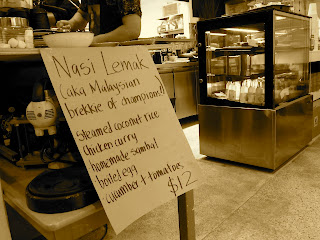 Nasi Lemak
(aka Malaysian
brekkie of champions!)
steamed coconut rice
chicken curry
homemade sambal
boiled egg
cucumber + tomatoes
$12